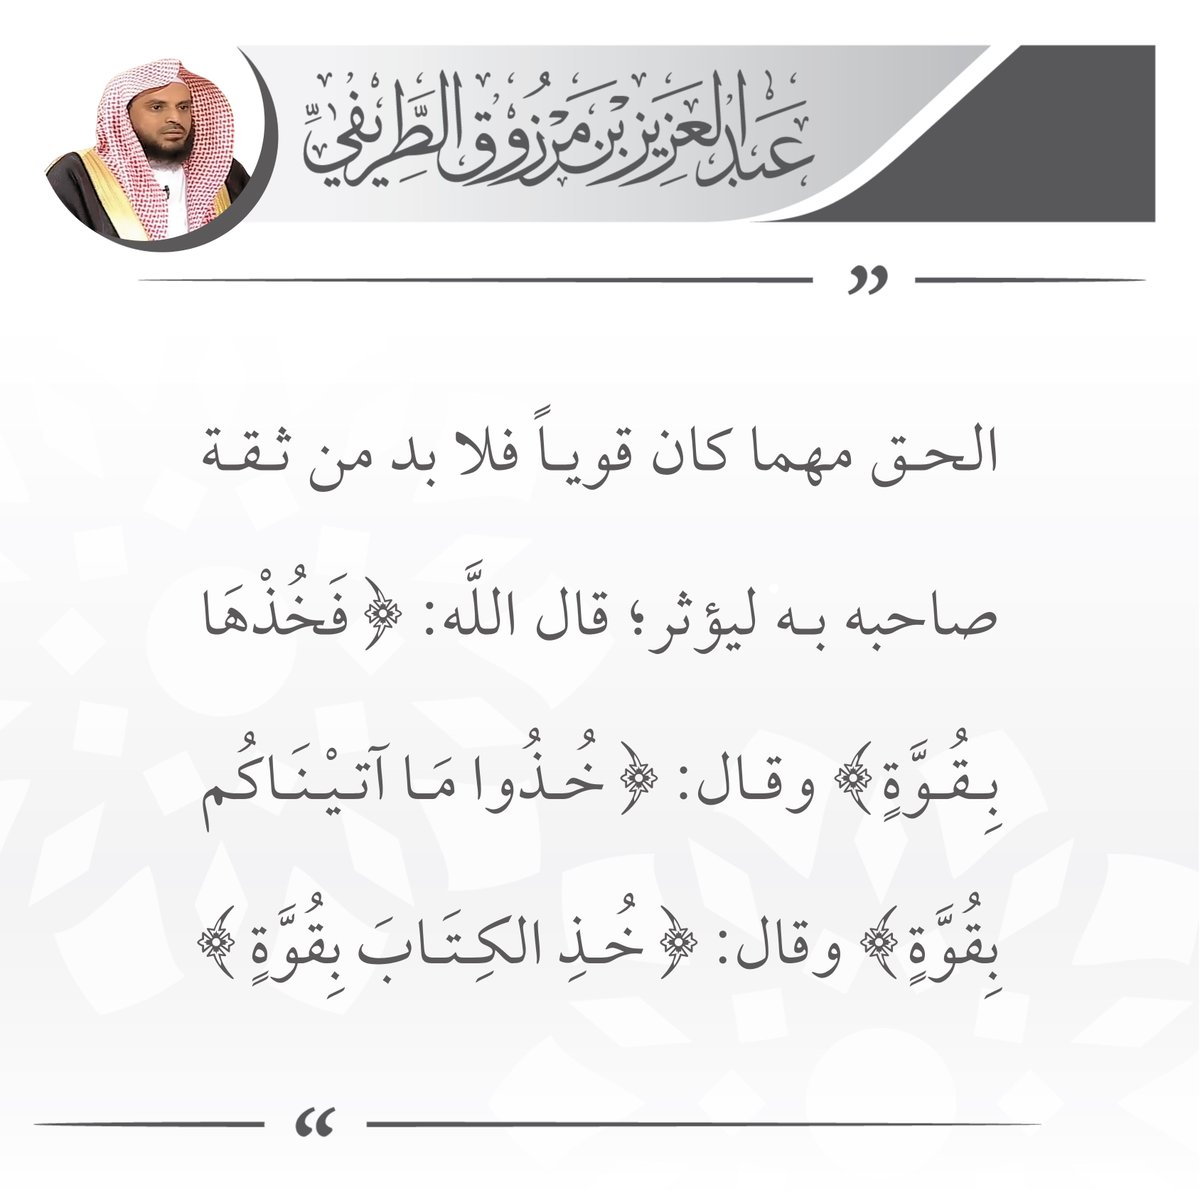 عبدالعزيز بن مرزوق الطَّرِيفيِّ
”
الحق مهما كان قوياً فلا بد من ثقة
صاحبه به ليؤثر؛ قال اللَّه: ﴿فَخُذْهَا
بِقُوَّةٍ﴾ وقال: ﴿خُذُوا مَا آتيْنَاكُم
بِقُوَّةٍ﴾ وقال: ﴿خُذِ الكِتَابَ بِقُوَّةٍ﴾
“